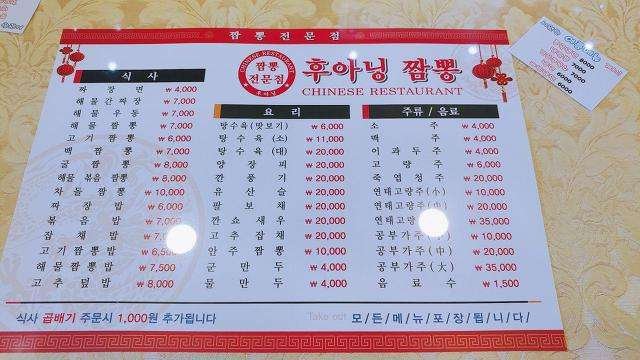 짬뽕전문점
CHINESE RESTAURANT
짬뽕
전문점
후아닝
후아닝 짬뽕
CHINESE RESTAURANT
식사
짜장면 ₩4,000
해물간짜장 ₩7,000
해물우동 ₩7,000
해물짬뽕 ₩7,000
고기짬뽕 ₩6,000
백짬뽕 ₩7,000
굴짬뽕 ₩8,000
해물볶음짬뽕 ₩8,000
차돌짬뽕 ₩10,000
짜장밥 ₩6,000
볶음밥 ₩7,000
잡채밥 ₩7,000
고기짬뽕밥 ₩6,500
해물짬뽕밥 ₩7,500
고추덮밥 ₩8,000
요리
탕수육(맛보기) ₩6,000
탕수육(소) ₩11,000
탕수육(대) ₩20,000
양장피 ₩20,000
깐풍기 ₩20,000
유산슬 ₩20,000
팔보채 ₩20,000
깐쇼새우 ₩20,000
고추잡채 ₩20,000
안주짬뽕 ₩10,000
군만두 ₩4,000
물만두 ₩4,000
주류/음료
소주 ₩4,000
맥주 ₩4,000
이과두주 ₩4,000
고량주 ₩6,000
죽엽청주 ₩20,000
연태고량주(小) ₩10,000
연태고량주(中) ₩20,000
연태고량주 ₩35,000
공부가주(小) ₩10,000
공부가주(中) ₩20,000
공부가주(大) ₩35,000
음료수 ₩1,500
식사 곱배기 주문시 1,000원 추가됩니다
Take out 모/든/메/뉴/포/장/됩/니/다/
8000
7000
7500
6000
6000